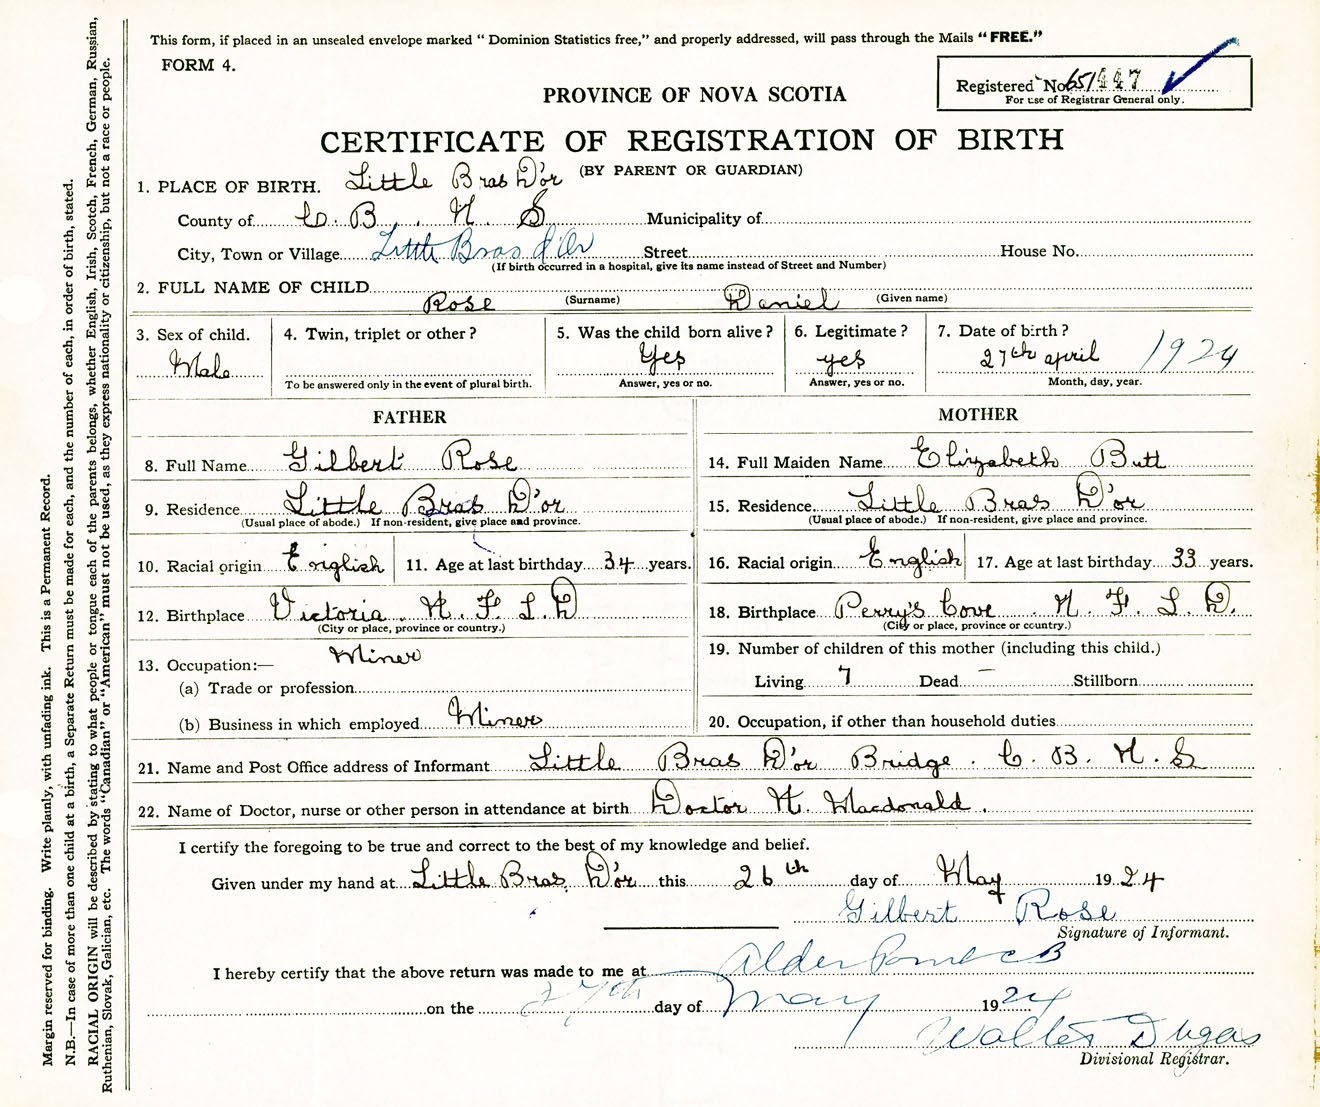 This form, if placed in an unsealed envelope marked “ Dominion Statistics free,” and properly addressed, will pass through the Mails “ FREE.”
FORM 4.
Registered No. 651447
For use of Registrar General only.
PROVINCE OF NOVA SCOTIA
CERTIFICATE OF REGISTRATION OF BIRTH
(BY PARENT OR GUARDIAN)
1. PLACE OF BIRTH. Little Bras D'or
County of C. B. N. S Municipality of
City, Town or Village Little Bras d'Or Street House No.
(If birth occurred in a hospital, give its name instead of Street and Number)
2. FULL NAME OF CHILD Rose (Surname) Daniel (Given name)
3. Sex of child. Male
4. Twin, triplet or other ?
To be answered only in the event of plural birth.
5. Was the child born alive ? Yes
Answer, yes or no.
6. Legitimate ? yes
Answer, yes or no.
7. Date of birth ? 27th april 1924
Month, day, year.
FATHER
8. Full Name Gilbert Rose
9. Residence Little Bras D'or
(Usual place of abode.) If non-resident, give place and province.
10. Racial origin English 11. Age at last birthday 34 years.
12. Birthplace Victoria. N. F. L. D
(City or place, province or country.)
13. Occupation:— Miner
(a) Trade or profession
(b) Business in which employed Miner
MOTHER
14. Full Maiden Name Elizabeth Butt
15. Residence Little Bras D'or
(Usual place of abode.) If non-resident, give place and province.
16. Racial origin English 17. Age at last birthday 33 years.
18. Birthplace Perry's Cove. N. F. L. D.
(City or place, province or country.)
19. Number of children of this mother (including this child.)
Living 7 Dead – Stillborn
20. Occupation, if other than household duties
21. Name and Post Office address of Informant Little Bras D'or Bridge. C. B. N. S
22. Name of Doctor, nurse or other person in attendance at birth Doctor N. Macdonald.
I certify the foregoing to be true and correct to the best of my knowledge and belief.
Given under my hand at Little Bras D'or this 26th day of May 1924
Gilbert Rose
Signature of Informant.
I hereby certify that the above return was made to me at Alder CB
on the 27th day of May 1924
Walter Dugas
Divisional Registrar.
Margin reserved for binding. Write plainly, with unfading ink. This is a Permanent Record.
N.B.—In case of more than one child at a birth, a Separate Return must be made for each, and the number of each, in order of birth, stated.
RACIAL ORIGIN will be described by stating to what people or tongue each of the parents belongs, whether English, Irish, Scotch, French, German, Russian,
Ruthenian, Slovak, Galician, etc. The words “Canadian” or “American” must not be used, as they express nationality or citizenship, but not a race or people.